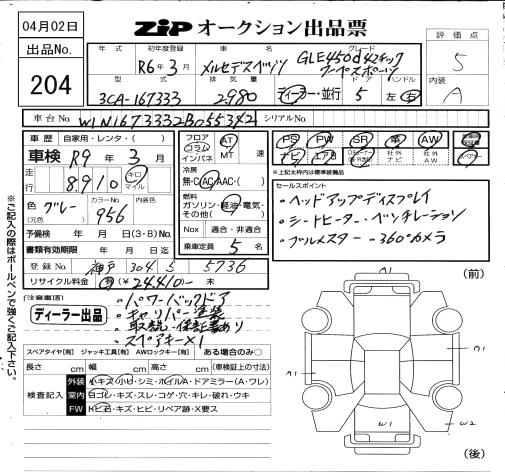 04月02日
ZIP オークション出品票
評価点
5
出品No.
204
年式 初年度登録 車名 グレード
R6年3月 メルセデスベンツ GLE450d 4マチック
クーペスポーツ
内装
A
型式 排気量 ディーラー・並行 ドア ハンドル
3CA-167333 2980 5 左 右
車台No. W1N1673332B055342 シリアルNo.
車歴 自家用・レンタ・( )
車検 R9年3月
走行 8,910 キロ マイル
フロア コラム インパネ AT MT 速
冷房
無・C・AC・AAC・( )
PS PW SR 革 AW
ナビ エアB 社外ナビ 社外AW
※上記太枠内は標準装備品
色(元色) グレー カラーNo. 956 内装色
燃料
ガソリン・軽油・電気・
その他( )
Nox 適合・非適合
乗車定員 5 名
予備検 年 月 日(3・8)No.
書類有効期限 年 月 日迄
登録No. 神戸 304 5736
リサイクル料金 有(¥ 24,410-) 未
セールスポイント
・ヘッドアップディスプレイ
・シートヒーター・ベンチレーション
・ブルメスター ・360°カメラ
(注意事項)
ディーラー出品
・パワーバックドア
・キャリパー塗装
・取説・保証書あり
・スペアキー×1
スペアタイヤ[有] ジャッキ工具[有] AWロックキー[有] ある場合のみ○
長さ cm 幅 cm 高さ cm (車検証上の寸法)
検査記入
外装 小キズ・小凹・シミ・ホイルA・ドアミラー(A・ワレ)
室内 ヨゴレ・キズ・スレ・コゲ・穴・キレ・破れ・ウキ
FW トビ石・キズ・ヒビ・リペア跡・X要ス
※ご記入の際はボールペンで強くご記入下さい。
(前)
A1
A1
A1
W1
W2
(後)